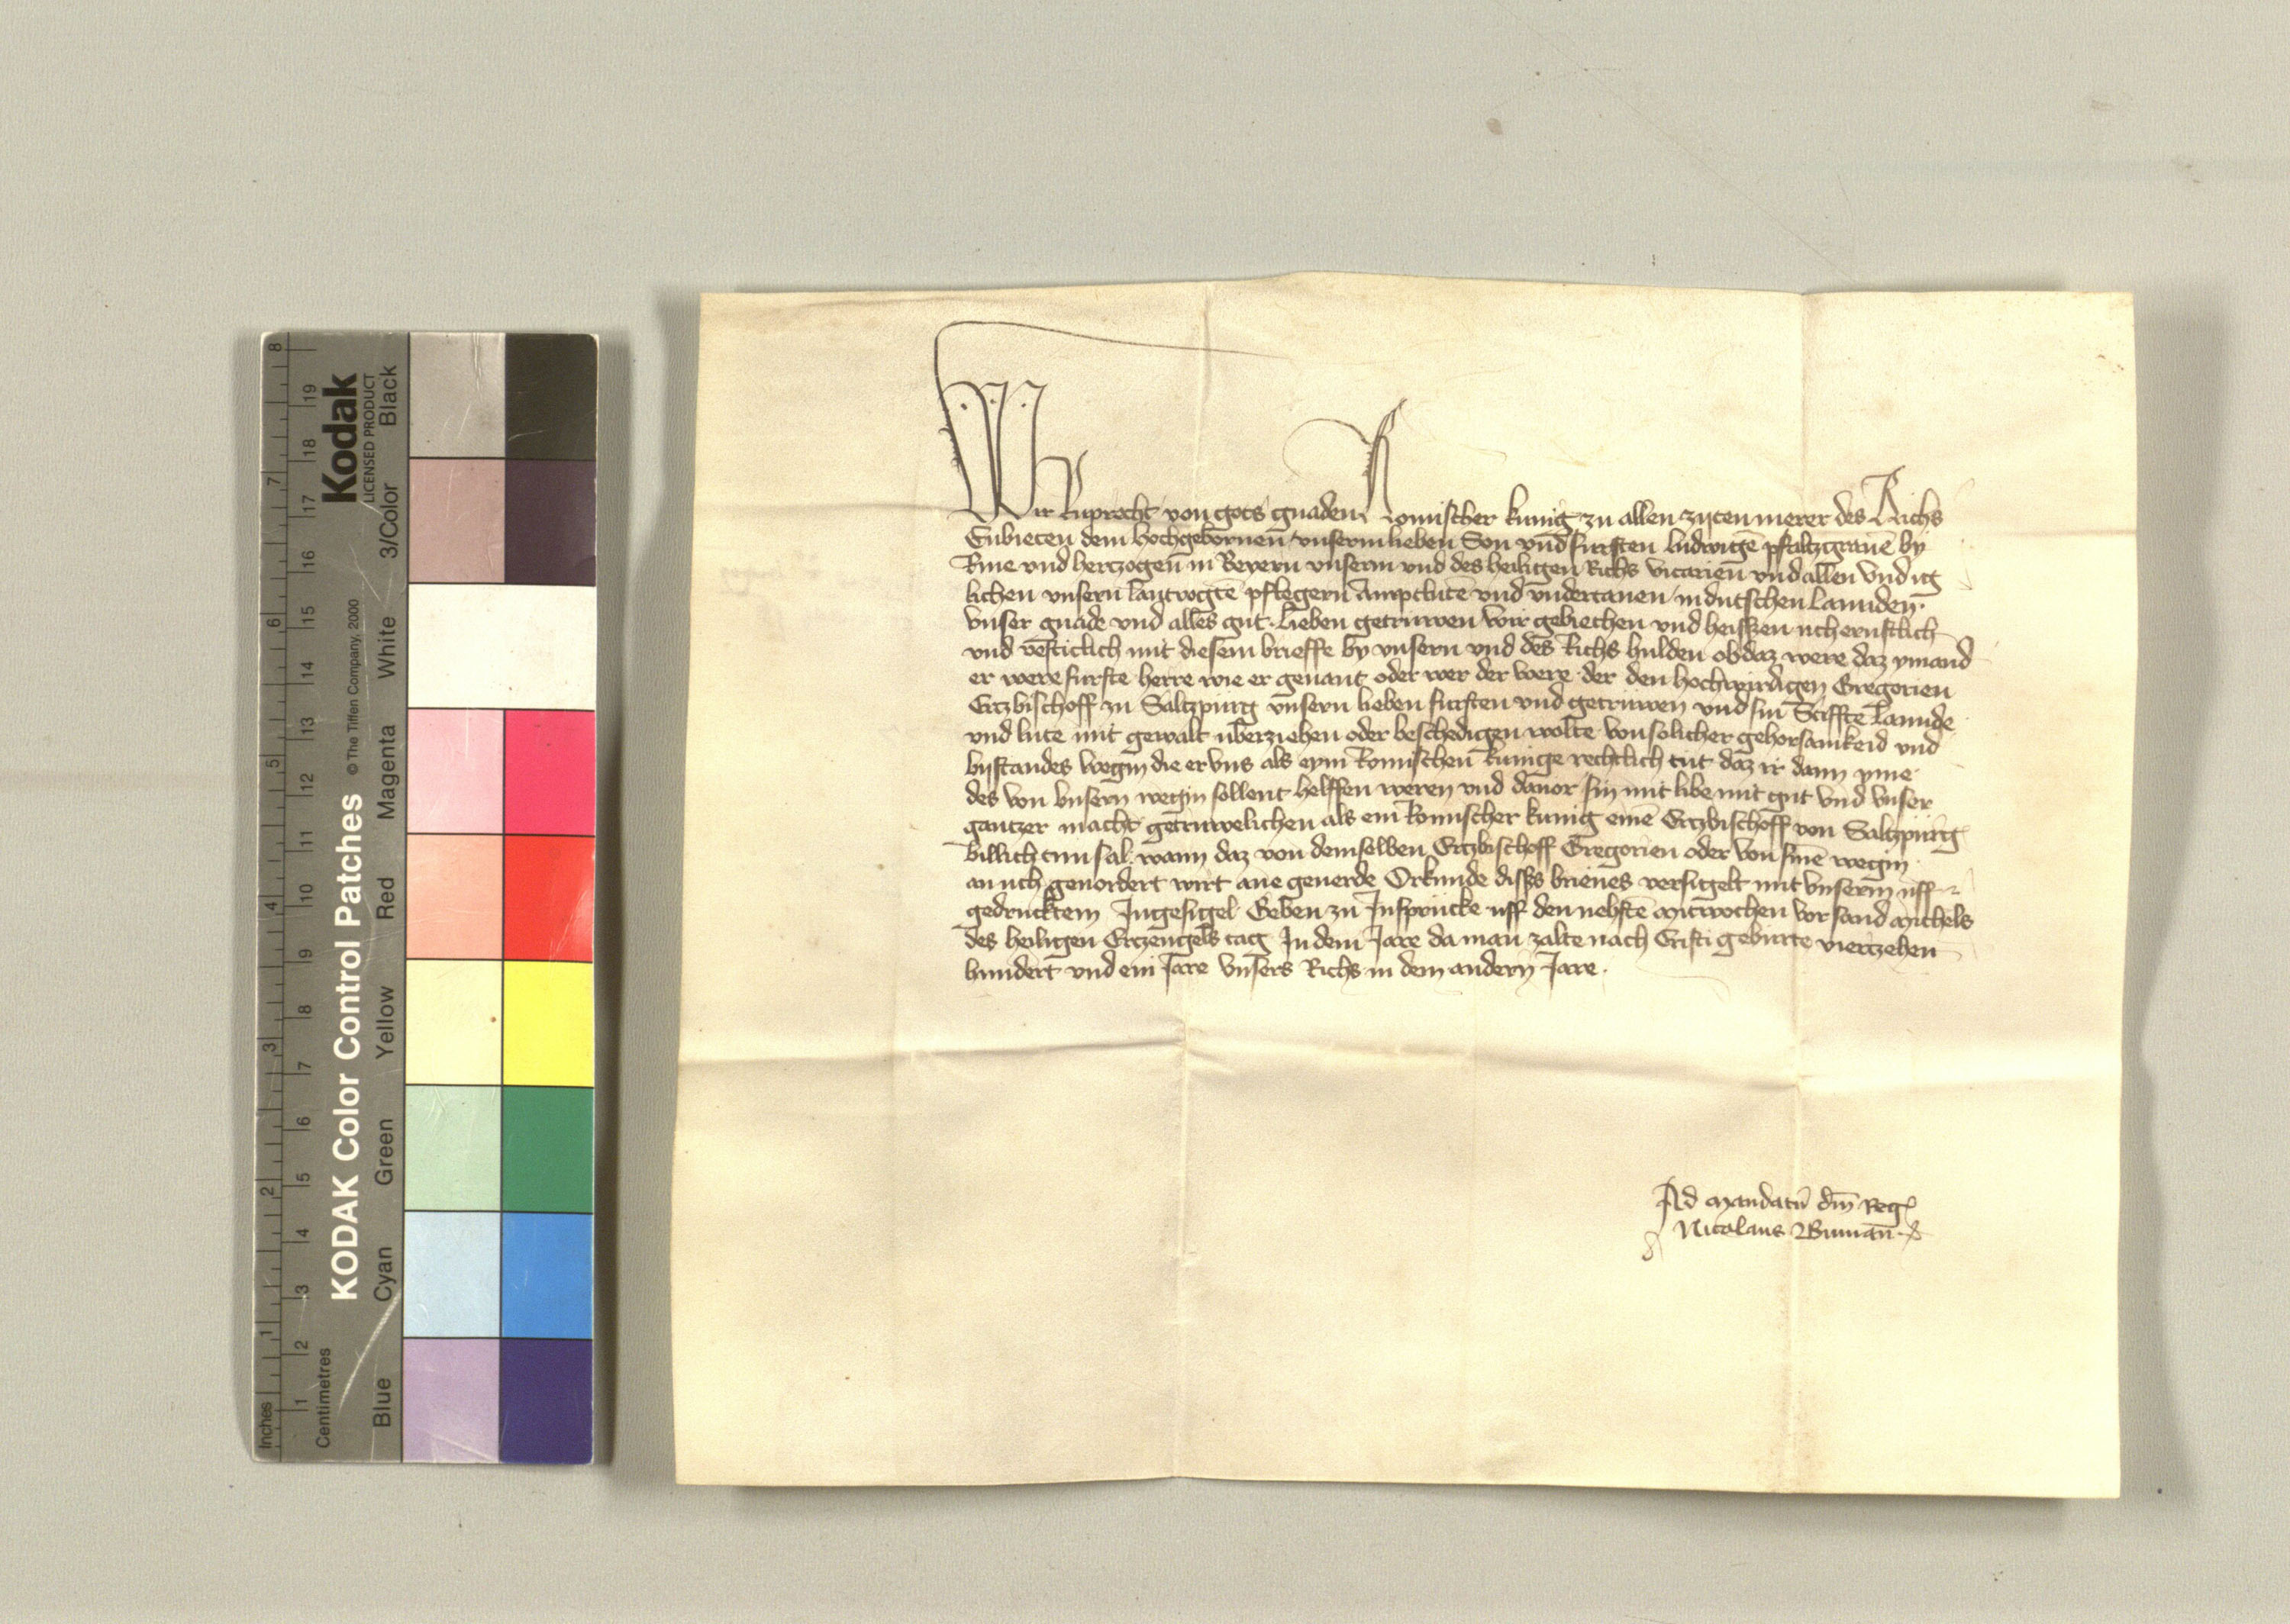 KODAK Color Control Patches © The Tiffen Company, 2000
Kodak
LICENSED PRODUCT
Blue Cyan Green Yellow Red Magenta White 3/Color Black
Inches 1 2 3 4 5 6 7 8
Centimetres 1 2 3 4 5 6 7 8 9 10 11 12 13 14 15 16 17 18 19
Wir Ruprecht von gots gnaden Romischer kunig zu allen zijten merer des Richs
Enbieten dem hochgebornen vnserm lieben Son vnd fursten Ludwige pfaltzgraue by
Rine vnd hertzogen in Beyern vnserm vnd des heiligen Richs vicarien vnd allen vnd ig
lichen vnsern lantvogte pflegern Amptlute vnd vndertanen in dutschen Lannden
Vnser gnade vnd alles gut. Lieben getruwen Wir gebiethen vnd heissen uch ernstlich
vnd vesticlich mit diesem brieffe by vnsern vnd des Richs hulden ob daz were daz ymand
er were furste herre wie er genant oder wer der were der den hochwirdigen Gregorien
Ertzbischoff zu Saltzpurg vnsern lieben fursten vnd getruwen vnd sin Stiffte Lannde
vnd lute mit gewalt uberziehen oder beschedigen wolte von solicher gehorsamkeid vnd
bijstandes wegin die er vns als eym Romischen kunige rechtlich tut daz ir dann yme
des von vnsern wegin sollent helffen weren vnd dauor sin mit libe mit gut vnd vnser
gantzer macht getruwelichen als ein Romischer kunig eine Ertzbischoff von Saltzpurg
billich tun sal. wann daz von demselben Ertzbischoff Gregorien oder von sine wegin
an uch geuordert wirt ane geuerde Orkunde disß brieues versigelt mit vnserm uff
gedrucktem Ingesigel Geben zu Insprucke uff den nehste mitwochen vor sand Michels
des heiligen Ertzengels tag In dem Jare da man zalte nach Cristi geburte viertzehen
hundert vnd ein Jare Vnsers Richs in dem andern Jare.
Ad mandatu dm Reg
Nicolaus Buman